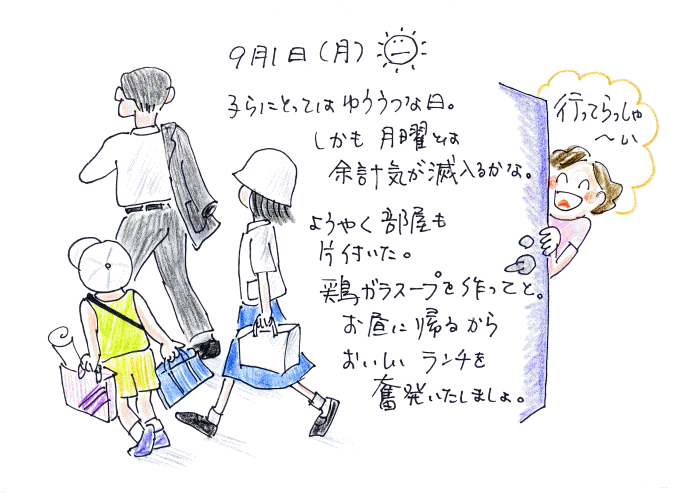 9月1日(月)
子らにとってはゆううつな日。
しかも月曜とは
余計気が滅入るかな。
ようやく部屋も
片付いた。
鶏ガラスープを作ってと。
お昼に帰るから
おいしいランチを
奮発いたしましょ。
行ってらっしゃ
〜い